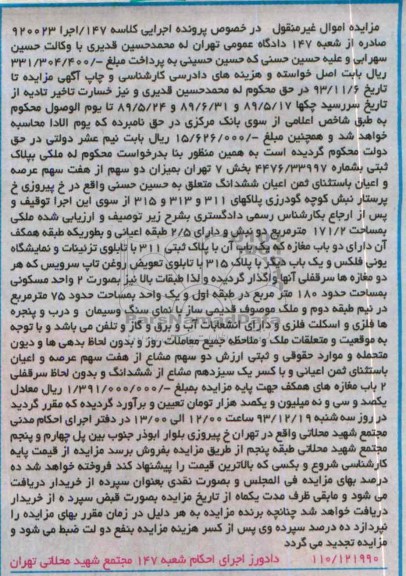 مزایده اموال غیرمنقول در خصوص پرونده اجرایی کلاسه ۱۴۷/اجرا ۹۲۰۰۲۳
صادره از شعبه ۱۴۷ دادگاه عمومی تهران له محمدحسین قدیری با وکالت حسین
سهرابی و علیه حسین حسنی که حسین حسینی به پرداخت مبلغ -/۳۳۱/۳۰۴/۴۰۰
ریال بابت اصل خواسته و هزینه های دادرسی کارشناسی و چاپ آگهی مزایده تا
تاریخ ۹۳/۱۱/۶ در حق محکوم له محمدحسین قدیری و نیز خسارت تاخیر تادیه از
تاریخ سررسید چکها ۸۹/۵/۱۷ و ۸۹/۶/۳۱ و ۸۹/۵/۲۴ تا یوم الوصول محکوم
به طبق شاخص اعلامی از سوی بانک مرکزی در حق نامبرده که یوم الادا محاسبه
خواهد شد و همچنین مبلغ -/۱۵/۶۲۶/۰۰۰ ریال بابت نیم عشر دولتی در حق
دولت محکوم گردیده است به همین منظور بنا بدرخواست محکوم له ملکی بپلاک
ثبتی بشماره ۴۴۷۶/۳۳۹۹۷ بخش ۷ تهران بمیزان دو سهم از هفت سهم عرصه
و اعیان باستثنای ثمن اعیان ششدانگ متعلق به حسین حسنی واقع در خ پیروزی خ
پرستار نبش کوچه گودرزی پلاکهای ۳۱۱ و ۳۱۳ و ۳۱۵ از سوی این اجرا توقیف و
پس از ارجاع بکارشناس رسمی دادگستری بشرح زیر توصیف و ارزیابی شده ملکی
بمساحت ۱۷۱/۲ مترمربع دو نبش و دارای ۲/۵ طبقه اعیانی و بطوریکه طبقه همکف
آن دارای دو باب مغازه که یک باب آن با پلاک ثبتی ۳۱۱ با تابلوی تزئینات و نمایشگاه
یونی فلکس و یک باب دیگر با پلاک ۳۱۵ با تابلوی تعویض روغن تاپ سرویس که هر
دو مغازه ها سرقفلی آنها واگذار گردیده و لذا طبقات بالا نیز بصورت ۲ واحد مسکونی
بمساحت حدود ۱۸۰ متر مربع در طبقه اول و یک واحد بمساحت حدود ۷۵ مترمربع
در نیم طبقه دوم و ملک موصوف قدیمی ساز با نمای سنگ وسیمان و درب و پنجره
ها فلزی و اسکلت فلزی و دارای انشعابات آب و برق و گاز و تلفن می باشد و با توجه
به موقعیت و متعلقات ملک و ملاحظه جمیع معاملات روز و بدون لحاظ بدهی ها و دیون
متحمله و موارد حقوقی و ثبتی ارزش دو سهم مشاع از هفت سهم عرصه و اعیان
باستثنای ثمن اعیانی و با کسر یک سیزدهم مشاع از ششدانگ و بدون لحاظ سرقفلی
۲ باب مغازه های همکف جهت پایه مزایده بمبلغ -/۱/۳۹۱/۰۰۰/۰۰۰ ریال معادل
یکصد و سی و نه میلیون و یکصد هزار تومان تعیین و برآورد گردیده که مقرر گردید
در روز سه شنبه ۹۳/۱۲/۱۹ ساعت ۱۲/۰۰ الی ۱۳/۰۰ در دفتر اجرای احکام مدنی
مجتمع شهید محلاتی واقع در تهران خ پیروزی بلوار ابوذر جنوب بین پل چهارم و پنجم
مجتمع شهید محلاتی طبقه پنجم از طریق مزایده بفروش برسد مزایده از قیمت پایه
کارشناسی شروع و بکسی که بالاترین قیمت را پیشنهاد کند فروخته خواهد شد ده
درصد بهای مزایده فی المجلس و بصورت نقدی بعنوان سپرده از خریدار دریافت
می شود و مابقی ظرف مدت یکماه از تاریخ مزایده بصورت قبض سپرده از خریدار
دریافت خواهد شد چنانچه برنده مزایده به هر دلیل در زمان مقرر بهای مزایده را
نپردازد ده درصد سپرده وی پس از کسر هزینه مزایده بنفع دولت ضبط می شود و
مزایده تجدید می گردد
۱۱۰/۱۲۱۹۹۰ دادورز اجرای احکام شعبه ۱۴۷ مجتمع شهید محلاتی تهران